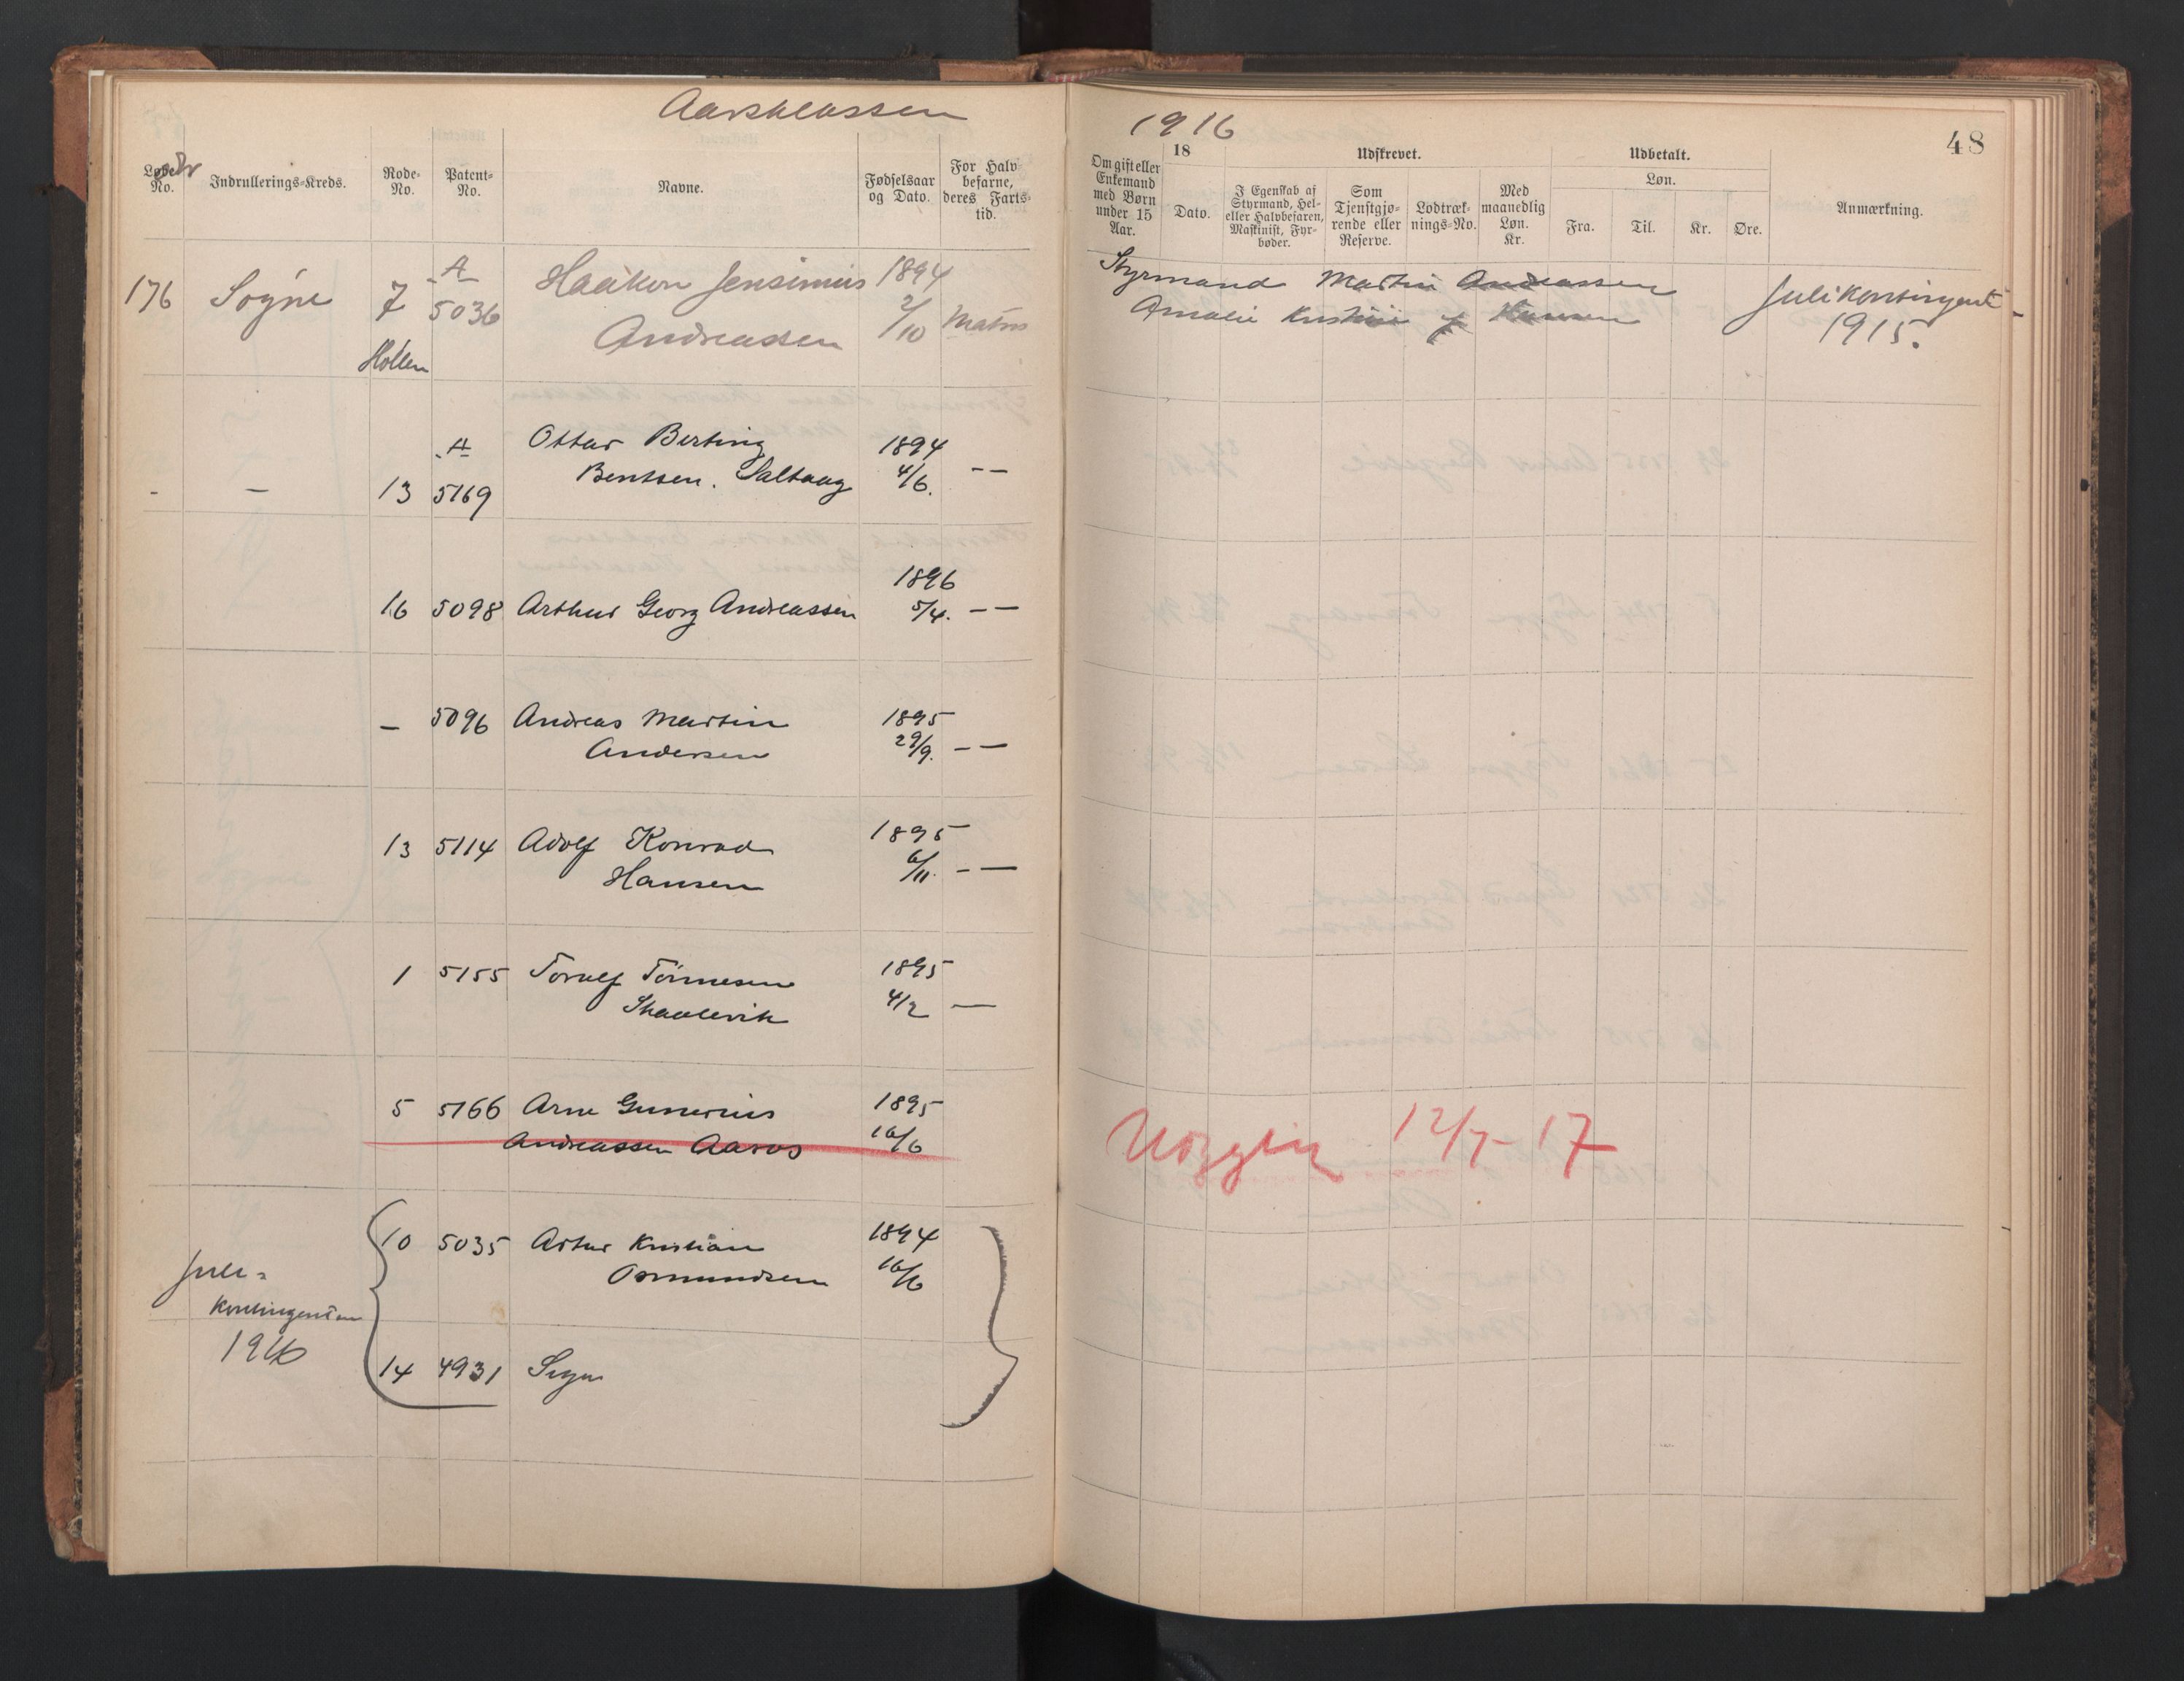 Aarsklassen 1916
48
Løbe-No.
Indrullerings-Kreds.
Rode-No.
Patent-No.
Navne.
Fødselsaar og Dato.
For Halvbefarne, deres Fartstid.
Om gift eller Enkemand med Børn under 15 Aar.
18
Dato.
Udskrevet.
I Egenskab af Styrmand, Hel- eller Halvbefaren, Maskinist, Fyrbøder.
Som Tjenstgjørende eller Reserve.
Lodtræknings-No.
Med maanedlig Løn. Kr.
Udbetalt.
Løn.
Fra.
Til.
Kr.
Øre.
Anmærkning.
176 Søgne 7 A 5036 Haakon Jensinius 1894
Andreassen 2/10 Matros
Hollen
Styrmand Martin Andreassen
Amalie Kristine f Hansen
Julikontingent
1915.
A Ottar Berting 1894
- — 13 5169 Bentsen. Saltaag 4/6. — —
1896
16 5098 Arthur Georg Andreassen 5/4. — —
— 5096 Andreas Martin 1895
Andersen 29/9. — —
13 5114 Adolf Konrad 1895
Hansen 6/11. — —
1 5155 Torulf Tönnesen 1895
Skaalevik 4/2 —
5 5166 Arne Gunerius 1895
Andreassen Aaros 16/6
12/7-17
10 5035 Artur Kristian 1894
Osmundsen 16/6
Juli-
Kontingenten
1916
14 4931